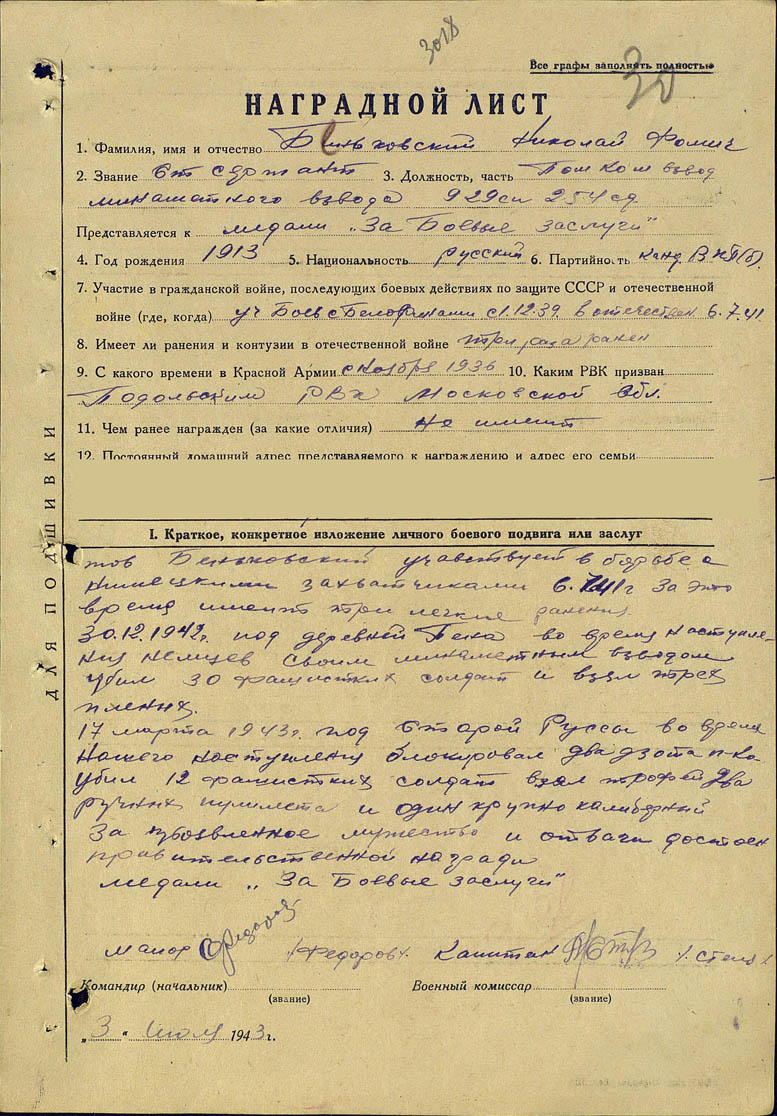 3018
Все графы заполнять полностью
30
НАГРАДНОЙ ЛИСТ
1. Фамилия, имя и отчество Беньковский Николай Фомич
2. Звание Ст сержант 3. Должность, часть Пом ком взвод
минаматного взвода 929сп 254сд
Представляется к медали „За Боевые заслуги"
4. Год рождения 1913 5. Национальность русский 6. Партийность канд. ВКП(б)
7. Участие в гражданской войне, последующих боевых действиях по защите СССР и отечественной
войне (где, когда) с 1.12.39. в отечествен 6.7.41
8. Имеет ли ранения и контузии в отечественной войне три раза ранен
9. С какого времени в Красной Армии с Ноября 1936 10. Каким РВК призван
Подольским РВК Московской Обл.
11. Чем ранее награжден (за какие отличия) Не имеит
12. Постоянный домашний адрес представляемого к награждению и адрес его семьи
ДЛЯ ПОДШИВКИ
I. Краткое, конкретное изложение личного боевого подвига или заслуг
тов Беньковский учавствует в барьбе с
нимецкими захватчиками 6. За это
время имеит три легкие ранения.
30.12.1942г. под деревней Пена во время наступле-
ния немцев своим минаметным взводом
убил 30 фашистких солдат и взял трех
пленых.
17 марта 1943г. под Старой Руссы во время
Нашего наступления блокировал два дзота
убил 12 фашистких солдат взял трофей два
ручных пулимета и один крупно калиберный
За мужество и отваги достоен
правительственной награди
медали „За Боевые заслуги"
майор /Федоров/ Капитан
Командир (начальник) Военный комиссар
(звание) (звание)
„3" Июля 1943г.